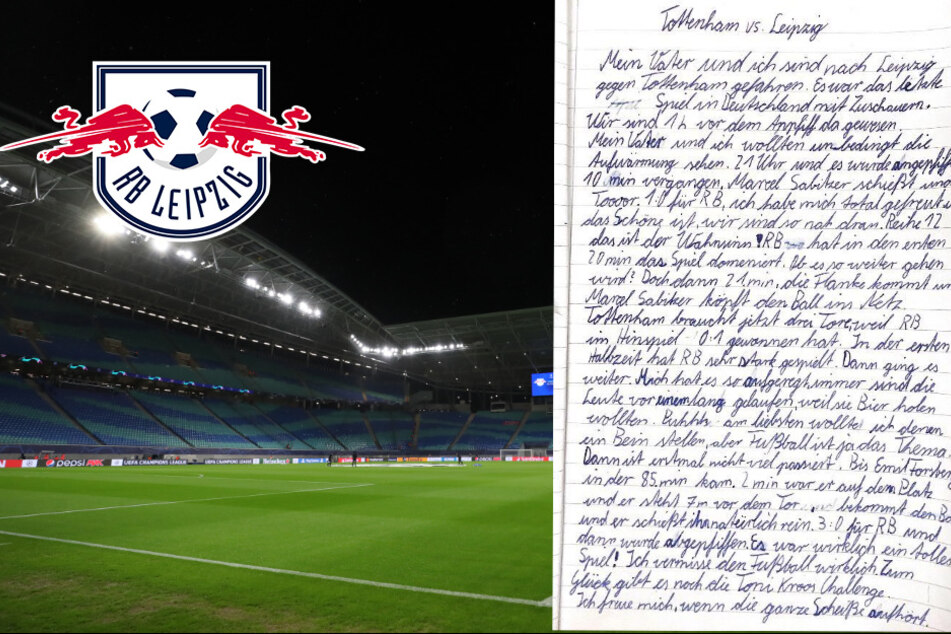 RB LEIPZIG
pepsi
UEFA CHAMPIONS LEAGUE
Heineken
Tottenham vs. Leipzig
Mein Vater und ich sind nach Leipzig
gegen Tottenham gefahren. Es war das letzte
Spiel in Deutschland mit Zuschauern.
Wir sind 1h vor dem Anpfiff da gewesen.
Mein Vater und ich wollten unbedingt die
Aufwärmung sehen. 21 Uhr und es wurde angepfiff
10 min vergangen, Marcel Sabitzer schießt und
Tooor. 1:0 für RB, ich habe mich total gefreut u
das Schöne ist, wir sind so nah dran. Reihe 12
das ist der Wahnsinn! RB hat in den ersten
20 min das Spiel domeniert. Ob es so weiter gehen
wird? Doch dann 21. min, die Flanke kommt un
Marcel Sabitzer köpft den Ball ins Netz.
Tottenham braucht jetzt drei Tore, weil RB
im Hinspiel 0:1 gewonnen hat. In der ersten
Halbzeit hat RB sehr stark gespielt. Dann ging es
weiter. Mich hat es so aufgeregt immer sind die
Leute vor einem lang gelaufen, weil sie Bier holen
wollten. Puhhh, am liebsten wollte ich denen
ein Bein stellen, aber Fußball ist ja das Thema.
Dann ist erstmal nicht viel passiert. Bis Emil Forsber
in der 85. min kam. 2 min war er auf dem Platz
und er steht 7m vor dem Tor bekommt den Ba
und er schießt ihn natürlich rein. 3:0 für RB und
dann wurde abgepfiffen. Es war wirklich ein tolles
Spiel! Ich vermisse den Fußball wirklich. Zum
Glück gibt es noch die Toni Kroos Challenge.
Ich freue mich, wenn die ganze Scheiße aufhört.